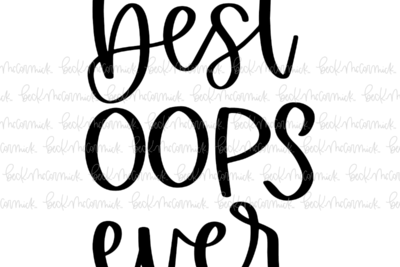 best
OOPS
ever